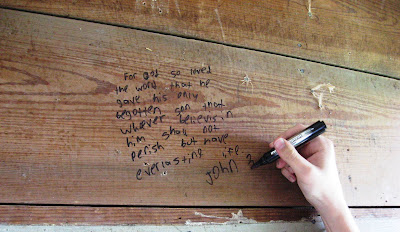 For God so loved
the word that he
gave his only
begotten son that
whoever believes in
him shall not
perish but have
everlasting life
John 3